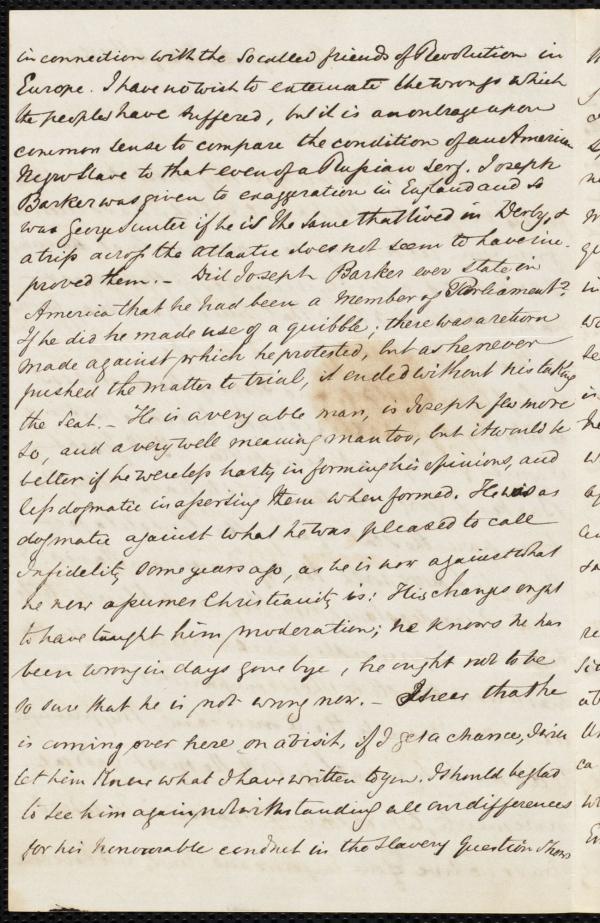 in connection with the so called friends of Revolution in
Europe. I have no wish to extenuate the wrongs which
the people have suffered, but it is an outrage upon
common sense to compare the condition of an America
Negro Slave to that even of a Rusſian serf. Joseph
Barker was given to exaggeration in England and so
was George Sunter if he is the same that lived in Derby, &
a trip acroſs the atlantic does not seem to have im-
proved them. – Did Joseph Barker ever state in
America that he had been a Member of Parliament?
If he did he made use of a quibble; there was a return
made against which he protested, but as he never
pushed the matter to trial, it ended without his taking
the Seat. – He is a very able man, is Joseph few more
so, and a very well meaning man too, but it would be
better if he were leſs hasty in forming his opinions, and
leſs dogmatic in aſserting them when formed. He was as
dogmatic against what he was pleased to call
Infidelity some years ago, as he is now against what
he now aſsumes Christianity is: His changes ought
to have taught him moderation; he knows he has
been wrong in days gone bye, he ought not to be
so sure that he is not wrong now. – I hear that he
is coming over here on a visit, if I get a chance, I will
let him know what I have written to you. I should be glad
to see him again notwithstanding all our differences
for his honourable conduct in the Slavery Question shows